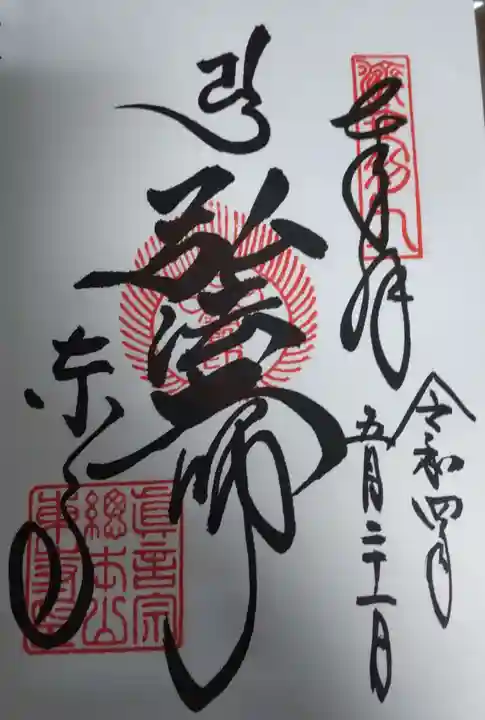 奉拝
令和四年
五月二十一日
弘法大師
東寺
真言宗
総本山
東寺印